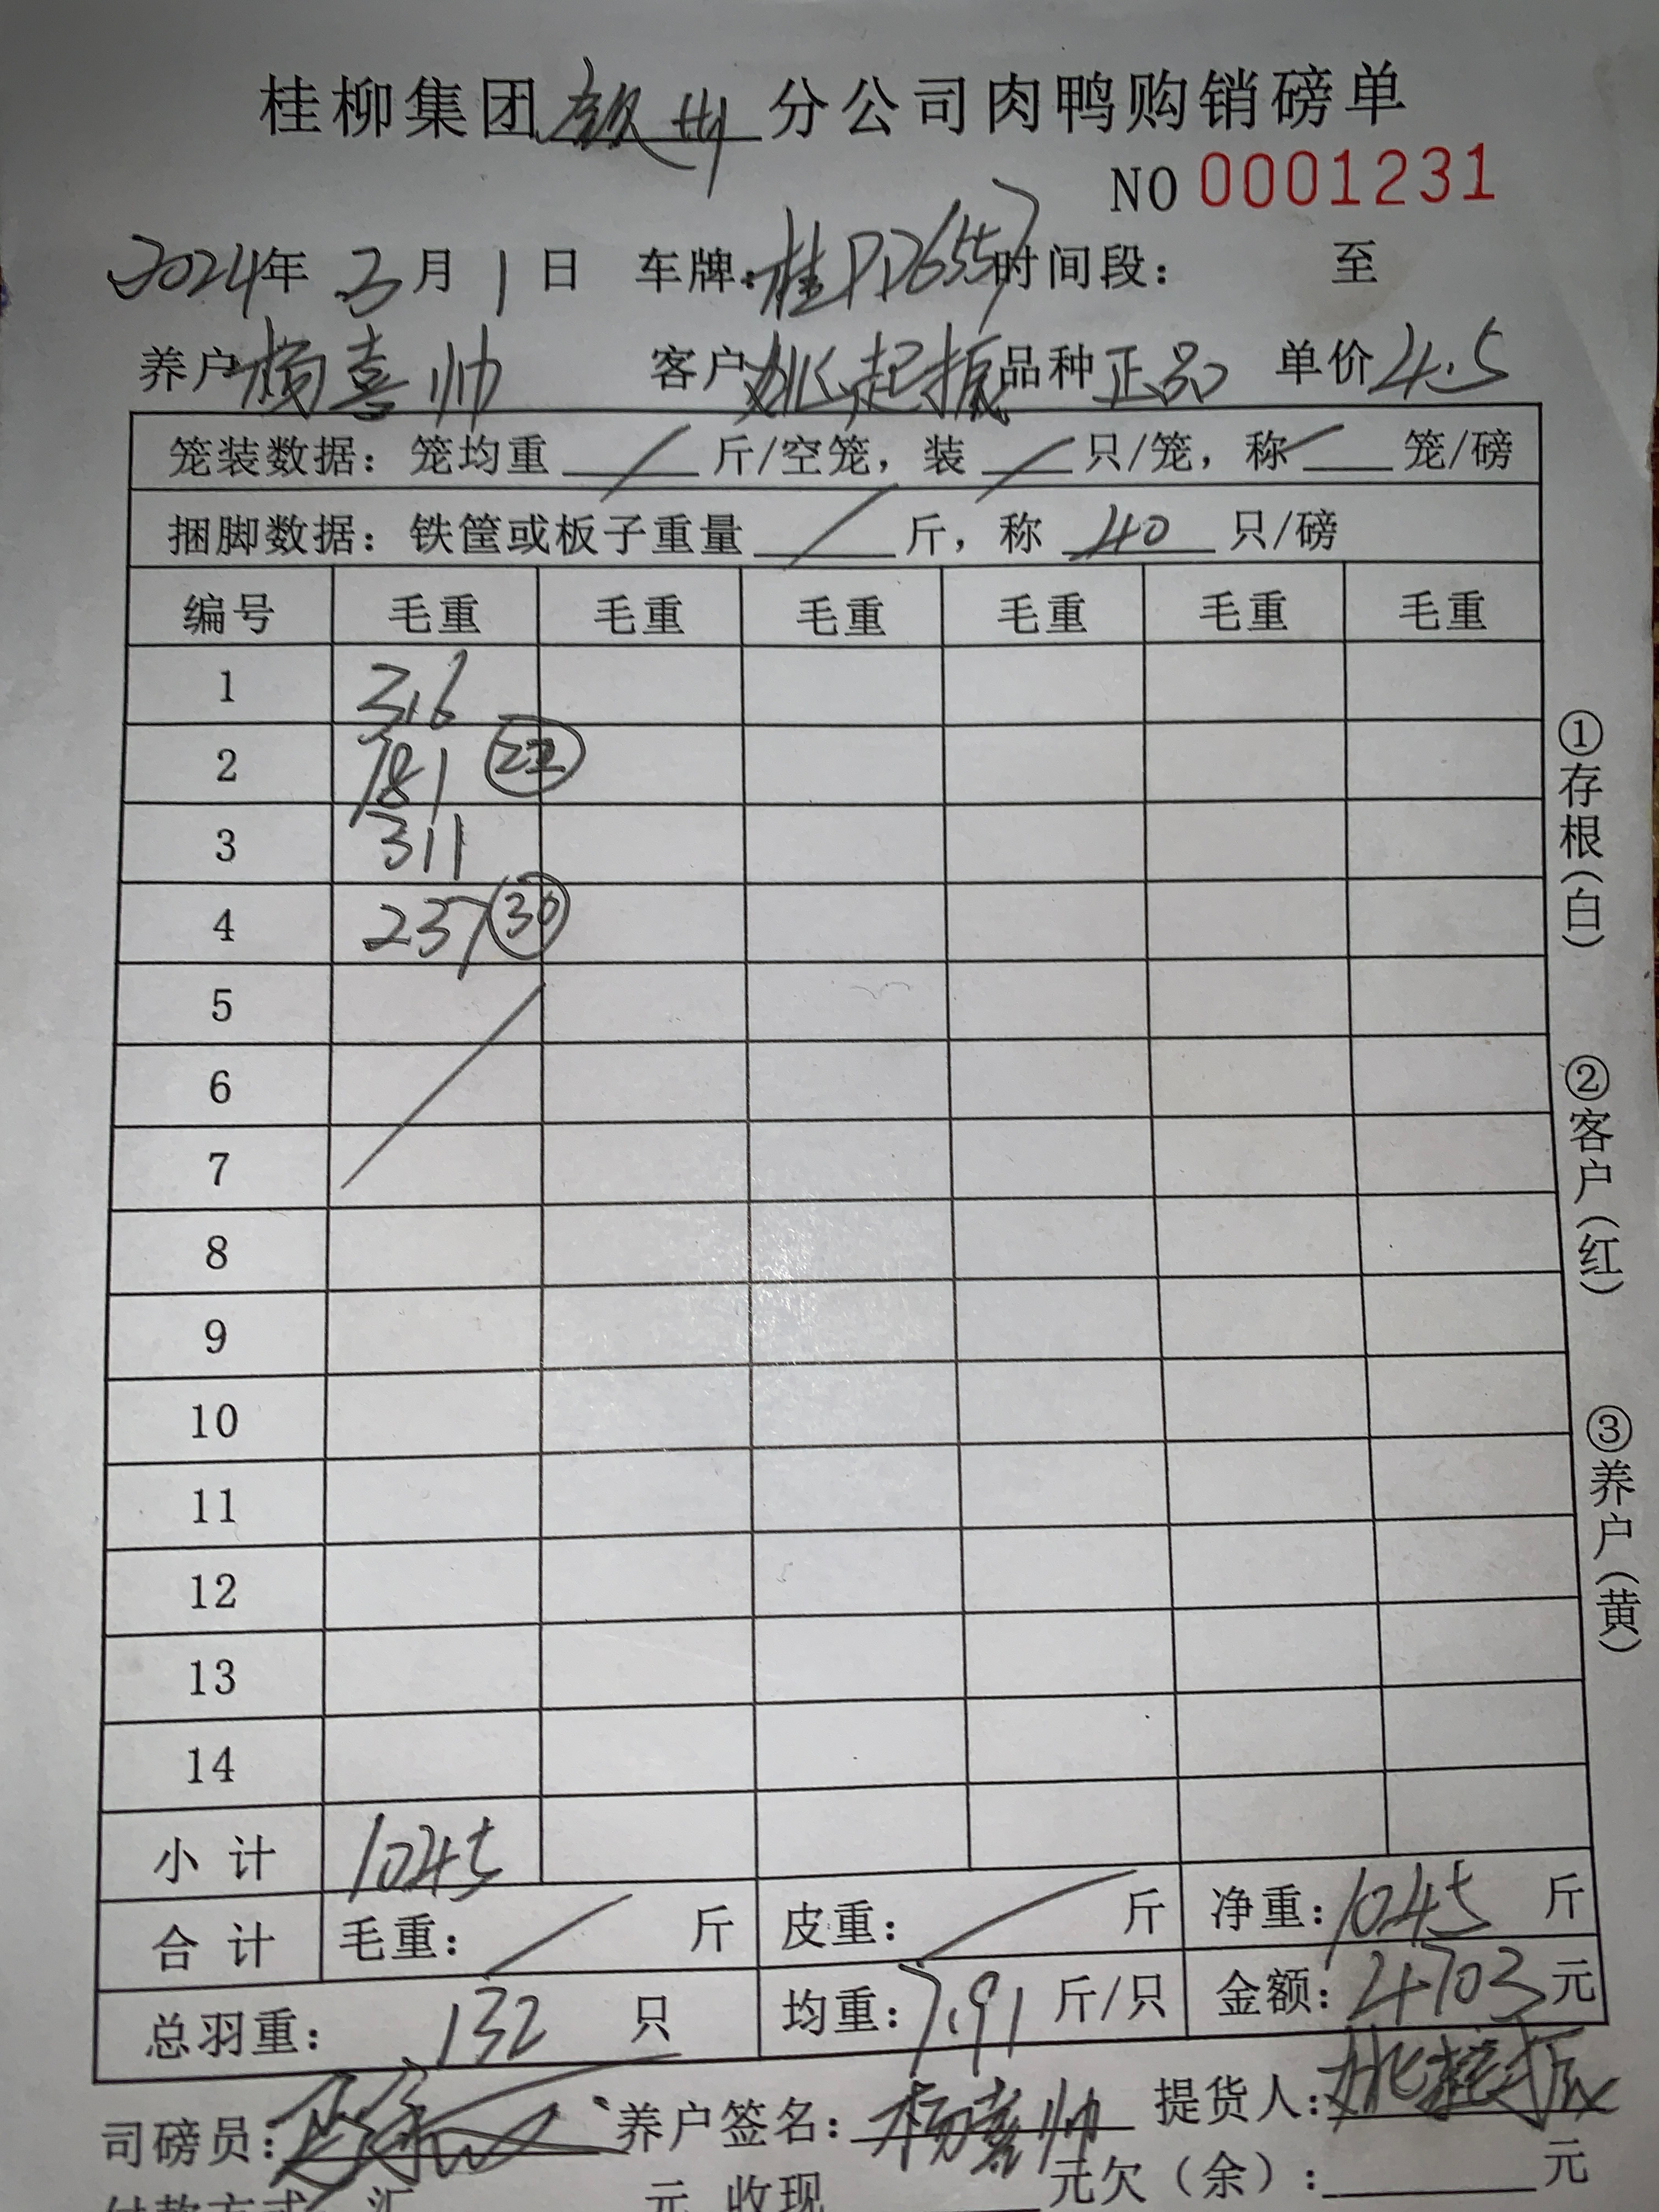 桂柳集团钦州分公司肉鸭购销磅单
NO 0001231
2024年 3月 1日 车牌:桂PD6557时间段: 至
养户杨喜帅 客户姚起振品种正品 单价4.5
笼装数据: 笼均重 / 斤/空笼, 装 / 只/笼, 称 / 笼/磅
捆脚数据: 铁筐或板子重量 / 斤, 称 40 只/磅
编号 毛重 毛重 毛重 毛重 毛重 毛重
1 316
2 181 (22)
3 311
4 237 (30)
5
6
7
8
9
10
11
12
13
14
小计 1045
合计 毛重: / 斤 皮重: / 斤 净重: 1045 斤
总羽重: 132 只 均重: 7.91 斤/只 金额: 4703元
司磅员: 养户签名: 杨喜帅 提货人: 姚起振
付款方式: 汇 元 收现 元欠(余): 元
①存根(白)
②客户(红)
③养户(黄)